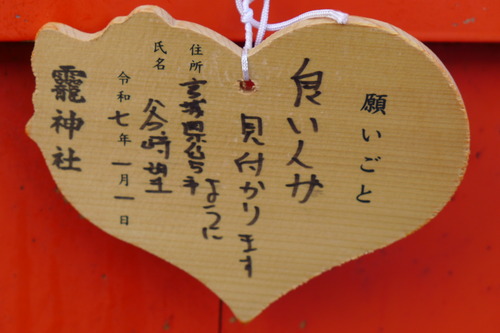 願いごと
良い人が
見付かります
ように
住所
宮城県仙台市
氏名
谷崎
令和七年一月一日
竈神社